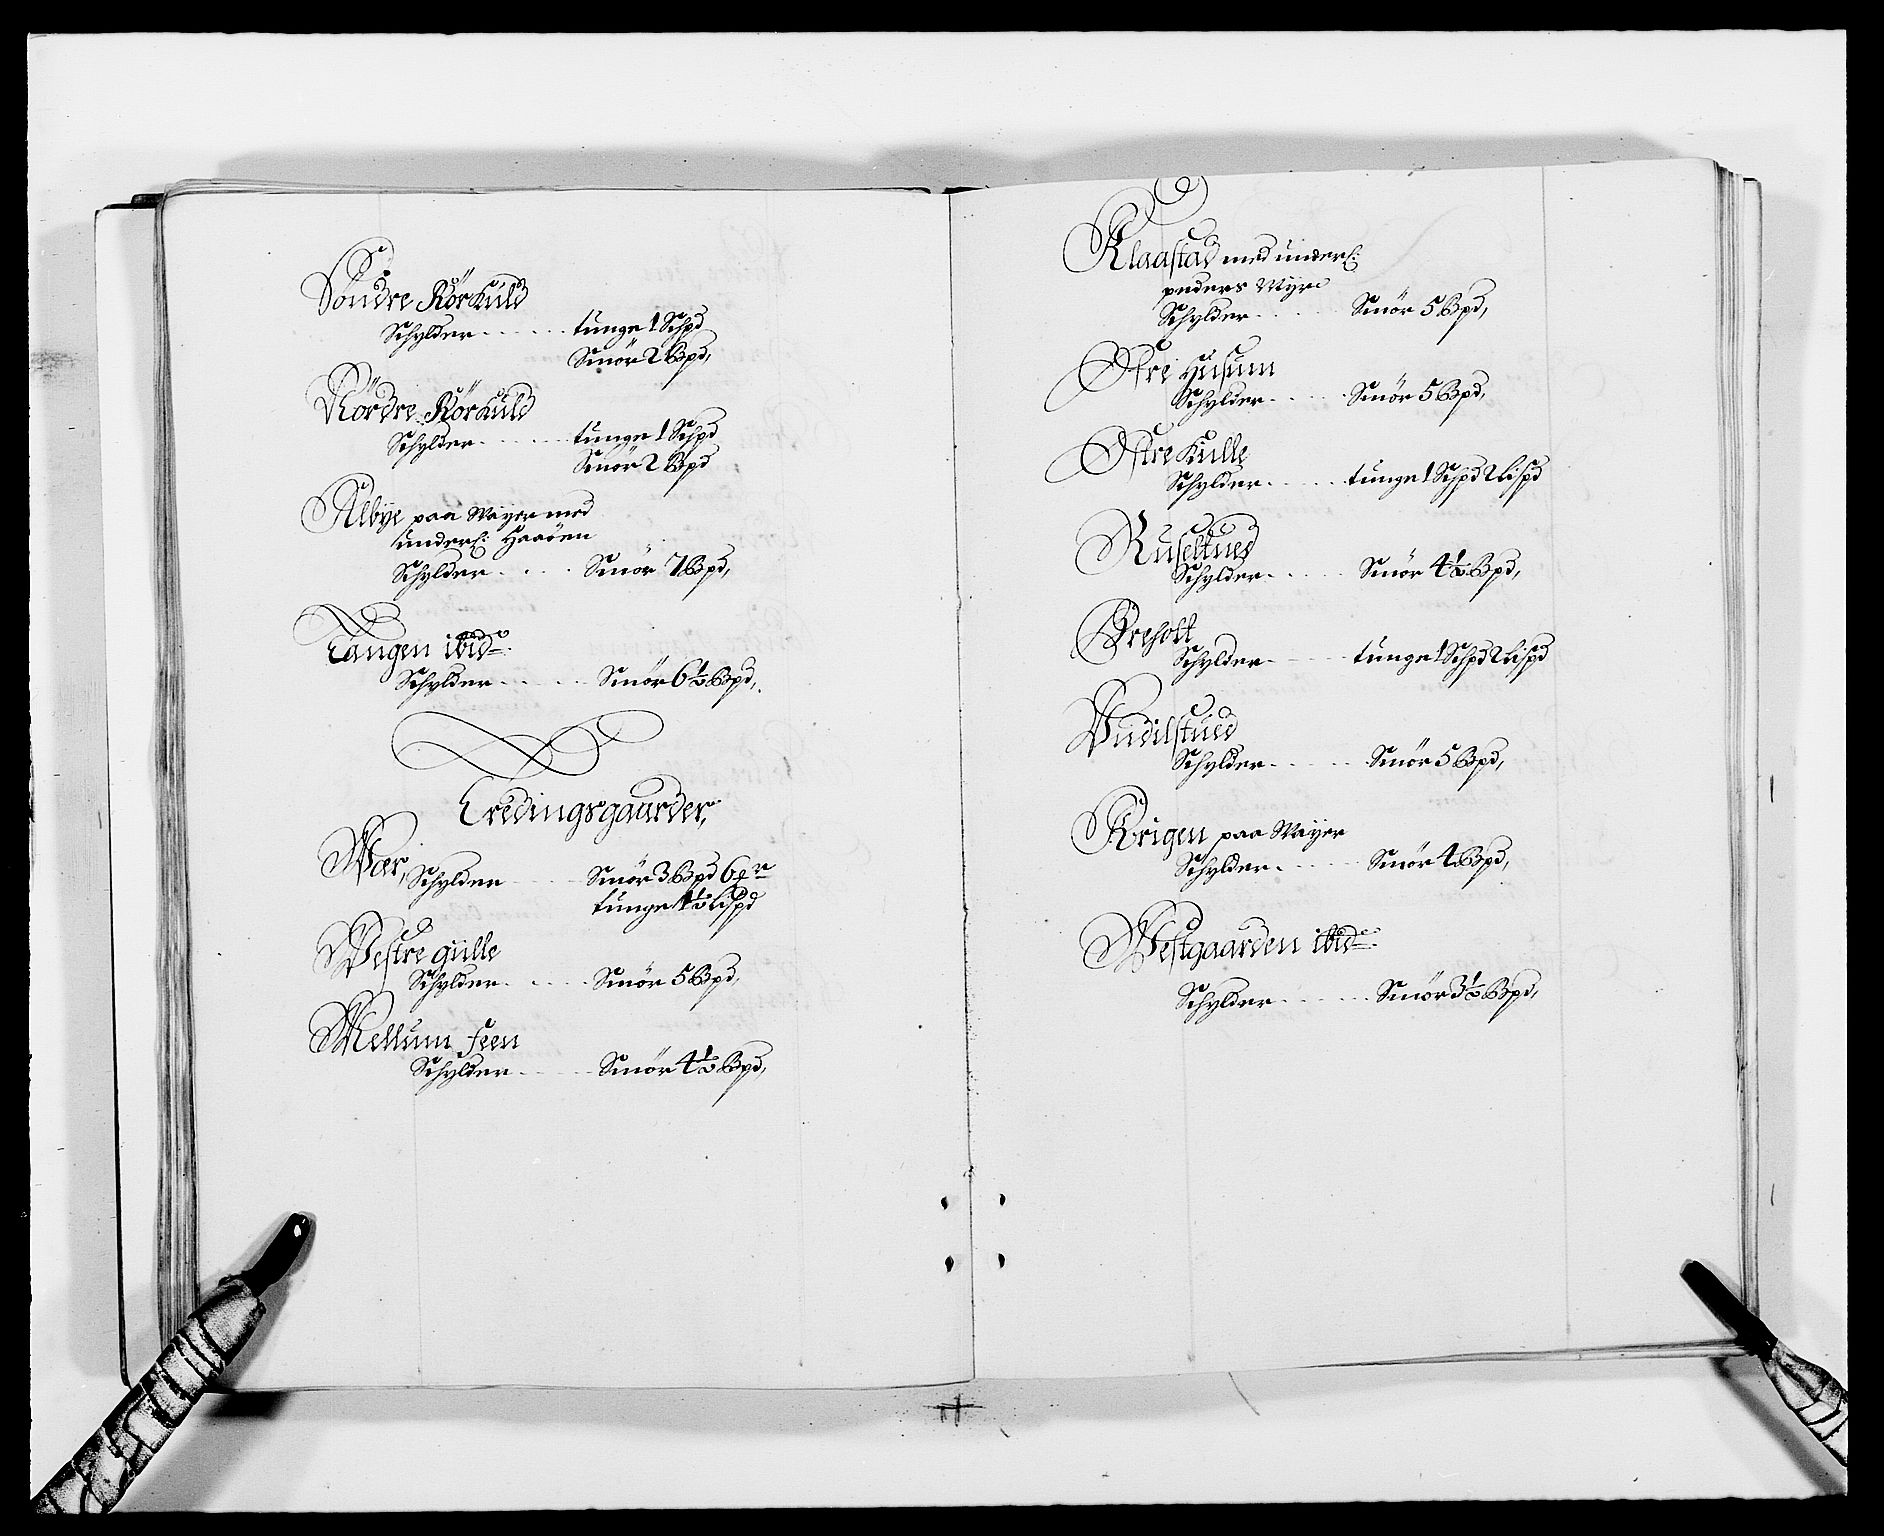 Söndre Körkuld
Schylder . . . . . . tunge 1 Schpd
Smör 2 Bpd,
Nördre Körkuld
Schylder . . . . . . tunge 1 Schpd
Smör 2 Bpd
Albye paa Møyen med
underl: Haaöen
Schylder . . . . Smör 7 Bpd,
Tangen ibid:
Schylder . . . . . Smör 6½ Bpd,
Tredingsgaarder,
Wær, Schylder Smör 3 Bpd 6
tunge 1½ Lispd
Westre gulle
Schylder . . . . . Smör 5 Bpd,
Mellum Feen
Schylder . . . . . Smör 4½ Bpd,
Klaastad med underl:
Myre
Schylder . . . . . Smör 5 Bpd,
Ofre Husum
Schylder . . . . . Smör 5 Bpd,
Östre Kulle
Schylder . . . . . tunge 1 Schpd 2 Lispd
Ruseltued
Schylder . . . . . Smör 4½ Bpd,
Breholt
Schylder . . . . . tunge 1 Schpd 2 Lispd
Vudilstued
Schylder . . . . . Smör 5 Bpd,
Krigen paa Møyen
Schylder . . . . . Smör 4 Bpd,
Westgaarden ibid:
Schylder . . . . . Smör 3½ Bpd,